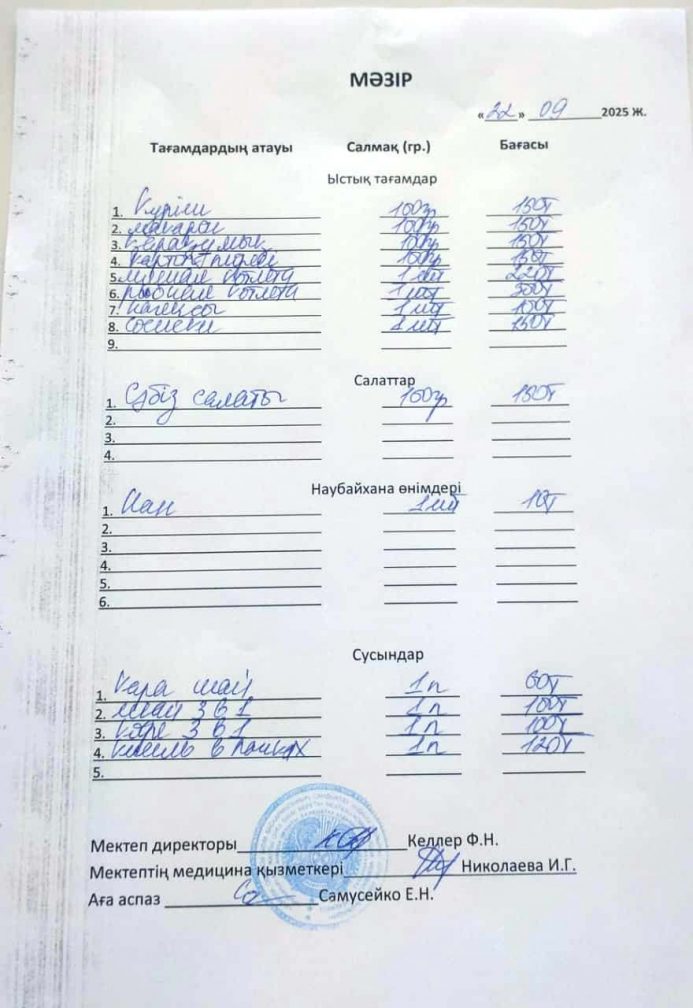 МӘЗІР
«22» 09 2025 Ж.
Тағамдардың атауы Салмақ (гр.) Бағасы
Ыстық тағамдар
1. Күріш 100гр 150т
2. макарон 100гр 150т
3. қарақұмық 100гр 150т
4. картоп пюреси 100гр 150т
5. котлета 1 шт 220т
6. рыбный котлета 1 шт 300т
7. 1 шт 100т
8. сосиски 1 шт 150т
9.
Салаттар
1. Сәбіз салаты 100гр 150т
2.
3.
4.
Наубайхана өнімдері
1. Нан 1шт 10т
2.
3.
4.
5.
6.
Сусындар
1. Қара шай 1п 60т
2. шай 3 в 1 1п 100т
3. кофе 3 в 1 1п 100т
4. кисель в пачках 1п 120т
5.
Мектеп директоры Келлер Ф.Н.
Мектептің медицина қызметкері Николаева И.Г.
Аға аспаз Самусейко Е.Н.